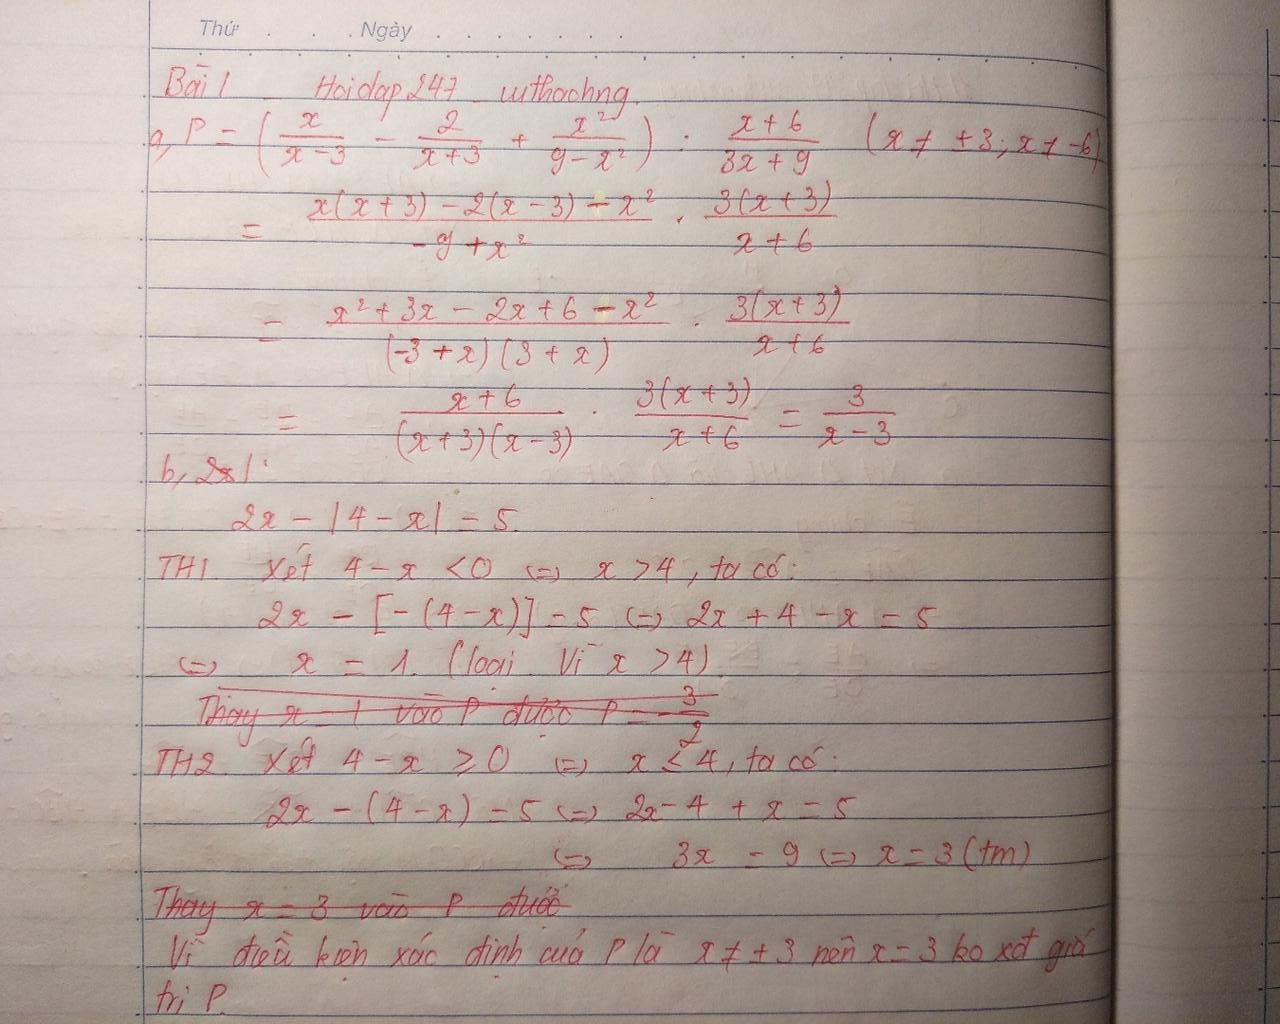 Thứ . . . Ngày . . . . . . .
Bài 1 Hoidap247
a, P = ( x/(x-3) - 2/(x+3) + x²/(9-x²) ) : (x+6)/(3x+9) (x ≠ ±3; x ≠ -6)
= (x(x+3) - 2(x-3) - x²)/(-9+x²) . 3(x+3)/(x+6)
= (x² + 3x - 2x + 6 - x²)/((-3+x)(3+x)) . 3(x+3)/(x+6)
= (x+6)/((x+3)(x-3)) . 3(x+3)/(x+6) = 3/(x-3)
b,
2x - |4-x| = 5.
TH1. Xét 4-x < 0 <=> x > 4, ta có:
2x - [-(4-x)] = 5 <=> 2x + 4 - x = 5
<=> x = 1. (loại. Vì x > 4)
Thay x = 1 vào P được P = -3/2
TH2. Xét 4-x ≥ 0 <=> x ≤ 4, ta có:
2x - (4-x) = 5 <=> 2x - 4 + x = 5
<=> 3x = 9 <=> x = 3 (tm)
Thay x = 3 vào P được
Vì điều kiện xác định của P là x ≠ ±3 nên x = 3 ko xét giá
trị P.